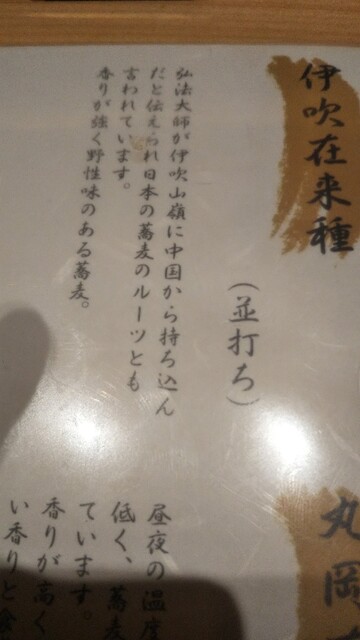 伊吹在来種
（並打ち）
弘法大師が伊吹山嶺に中国から持ち込ん
だと伝えられ日本の蕎麦のルーツとも
言われています。
香りが強く野性味のある蕎麦。
丸岡
昼夜の温度
低く、蕎麦
ています。
香りが高く
い香りと食